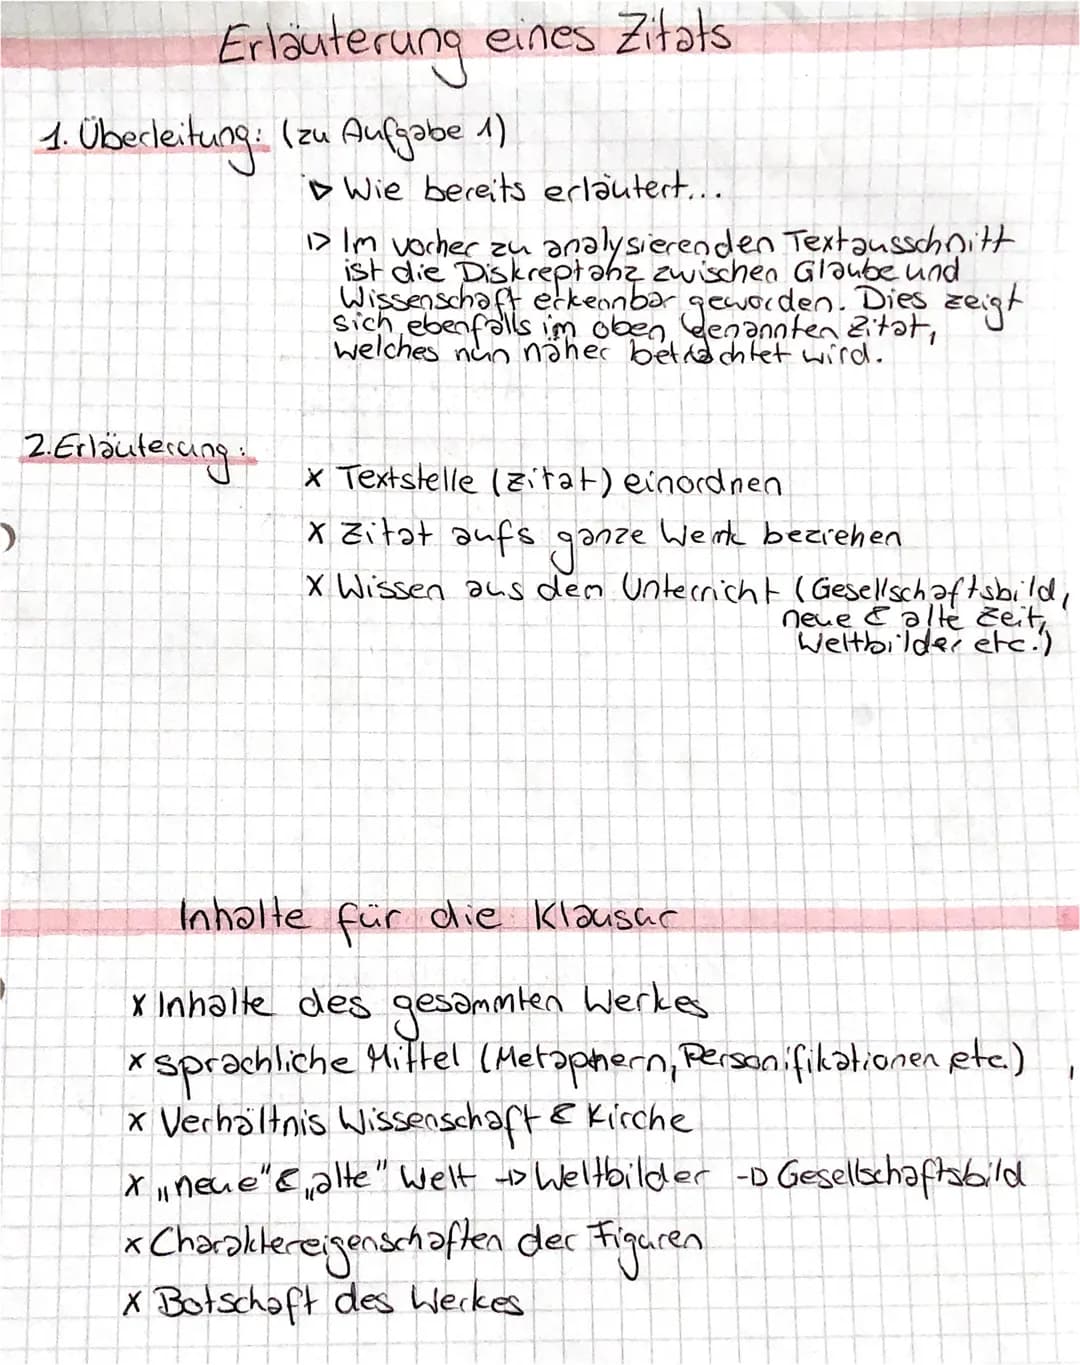 Erläuterung eines Zitats
1. Überleitung: (zu Aufgabe 1)
▷ Wie bereits erläutert...
▷ Im vorher zu analysierenden Textausschnitt
ist die Diskreptanz zwischen Glaube und
Wissenschaft erkennbar geworden. Dies zeigt
sich ebenfalls im oben genannten Zitat,
welches nun näher betrachtet wird.
2. Erläuterung:
x Textstelle (Zitat) einordnen
x Zitat aufs ganze Werk beziehen
x Wissen aus dem Unterricht (Gesellschaftsbild,
neue & alte Zeit,
Weltbilder etc.)
Inhalte für die Klausur
x Inhalte des gesammten Werkes
x sprachliche Mittel (Metaphern, Personifikationen etc.)
x Verhältnis Wissenschaft & Kirche
x „neue" & „alte" Welt -▷ Weltbilder -▷ Gesellschaftsbild
x Charaktereigenschaften der Figuren
x Botschaft des Werkes